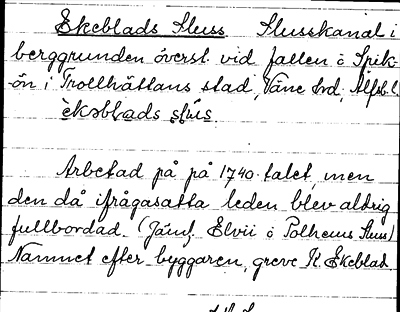 Ekeblads Sluss Slusskanal i
berggrunden överst vid fallen å Spik-
ön i Trollhättans stad, Väne hrd, Älfsb. l.
èkəblads slús.
Arbetad på på 1740-talet, men
den då ifrågasatta leden blev aldrig
fullbordad. (Jämf. Elvii å Polhems Sluss)
Namnet efter byggaren, greve Kl. Ekeblad.